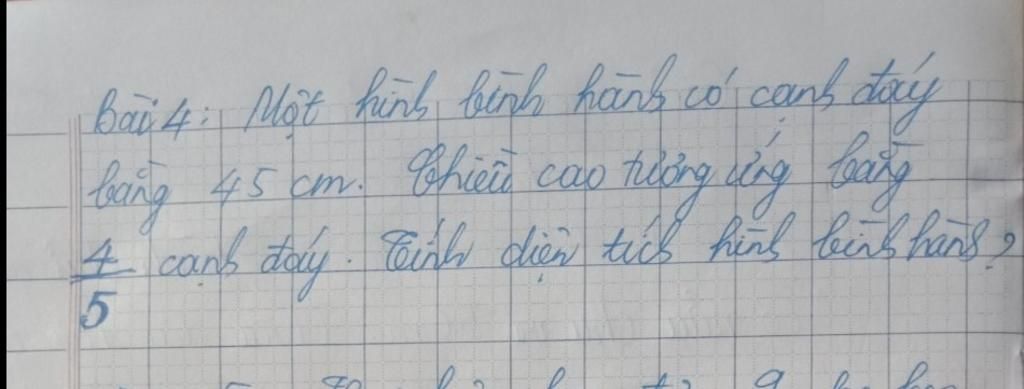 Bài 4: Một hình bình hành có cạnh đáy
bằng 45 cm. Chiều cao tương ứng bằng
4/5 cạnh đáy. Tính diện tích hình bình hành?